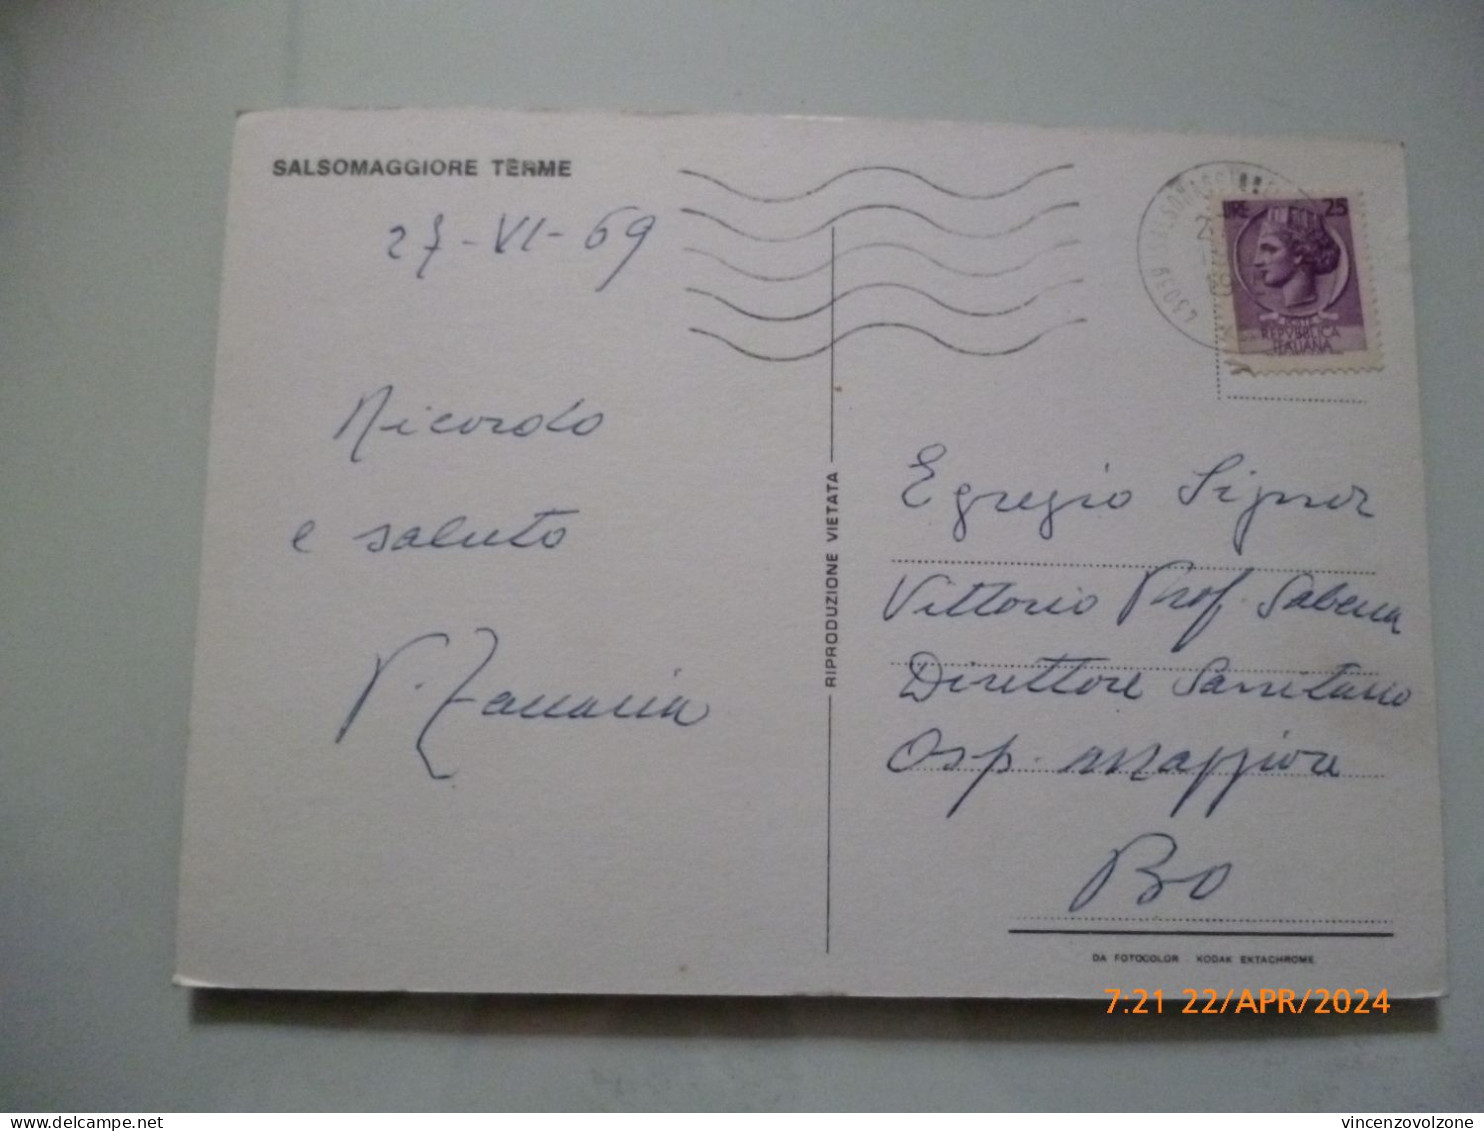 SALSOMAGGIORE TERME
27-VI-69
Ricordo
e saluto
P. Zaccaria
RIPRODUZIONE VIETATA
LIRE 25
POSTE
REPVBBLICA
ITALIANA
43039 SALSOMAGGIORE
Egregio Signor
Vittorio Prof. Sabena
Direttore Sanitario
Osp. Maggiore
BO
DA FOTOCOLOR KODAK EKTACHROME
7:21 22/APR/2024
vincenzovolzone